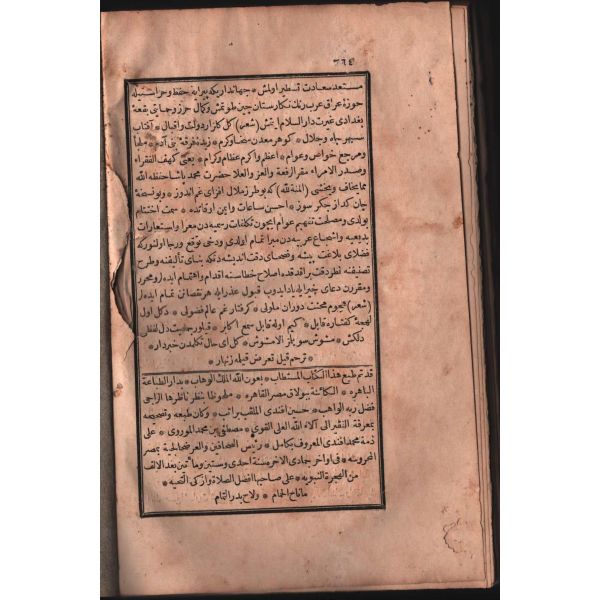 ٢٦٤
مستعد سعادت تسطير اولمش * جهاندار يكه پيرايه حفظ و حراستيله
حوزۀ عراق عرب رنك نكارستان چين طوتمش وكمال حرز و حمايتى بقعۀ
بغدادى غيرت دار السلام ايتمش (شعر) كل كلزار دولت واقبال * آفتاب
سپهر جاه وجلال * كوهر معدن سخا وكرم * زبدۀ فرقۀ بنى آدم * ملجأ
ومرجع خواص وعوام * اعظم واكرم عظام وكرام * يعنى كهف الفقراء
وصدر الامراء مقر الرفعة والعز والعلا حضرت محمد پاشا حفظه الله
مما يخاف ويخشى (المنة لله) كه بو طرز ملال افزاى غم اندوز * وبو نسخۀ
جان كداز جكر سوز * احسن ساعات وايمن اوقاتده * سمت اختتام
بولدى ومصلحت تفهيم عوام ايچون تكلفات رسميه دن معرا واستعارات
بديعيه واسجاع عربيه دن مبرا تمام اولدى ودخى توقع ورجا اولنور كه
فضلاى بلاغت پيشه وفصحاى دقت انديشه دقتكه بناى تأليفنه وطرح
تصنيفنه نظر دقت براقدقده اصلاح خطاسنه اقدام واهتمام ايده لر ومحرر
ومقررن دعاى خير ايله ياد ايدوب قبول عذر ايله هر نقصانن تمام ايده لر
(شعر) هجوم محنت دوران ملولى * كرفتار غم عالم فضولى * دكل اول
لهجۀ كفتاره قابل * كيم اوله قابل سمع اكابر * قيلور جمعيت دل لفظ
دلكش * مشوش سويلر الا مشوش * كل اى حال تكلمدن خبردار *
ترحم قيل تعرض قيلمه زنهار *
قد تم طبع هذا الكتاب المستطاب * بعون الله الملك الوهاب * بدار الطباعة
الباهره * الكائنة ببولاق مصر القاهره * ملحوظا بنظر ناظرها الراجى
فضل ربه الواهب * حسين افندى الملقب براتب * وكان طبعه وتصحيحه
بمعرفة الفقير الى آلاء الله العلى القوى * مصطفى بن محمد الموروى * على
ذمة محمد افندى المعروف بكامل * رئيس الصحافين والعرضحالجية بمصر
المحروسه * فى اواخر جمادى الآخر من سنة احدى وستين ومائتين بعد الالف
من الهجرة النبويه * على صاحبها افضل الصلاة وازكى التحيه *
ما ناح الحمام * ولاح بدر التمام